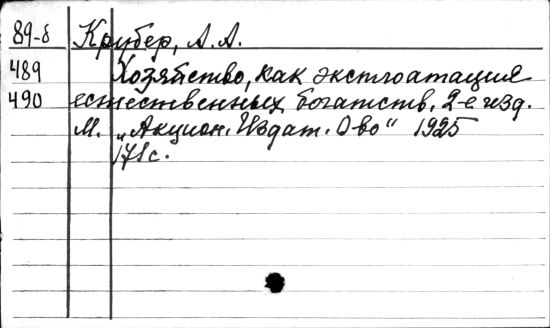 89-б Крубер, А. А.
489 Хозяйство, как эксплоатация
490 естественных богатств. 2-е изд.
М. „Акцион. Издат. О-во“ 1925
171с.